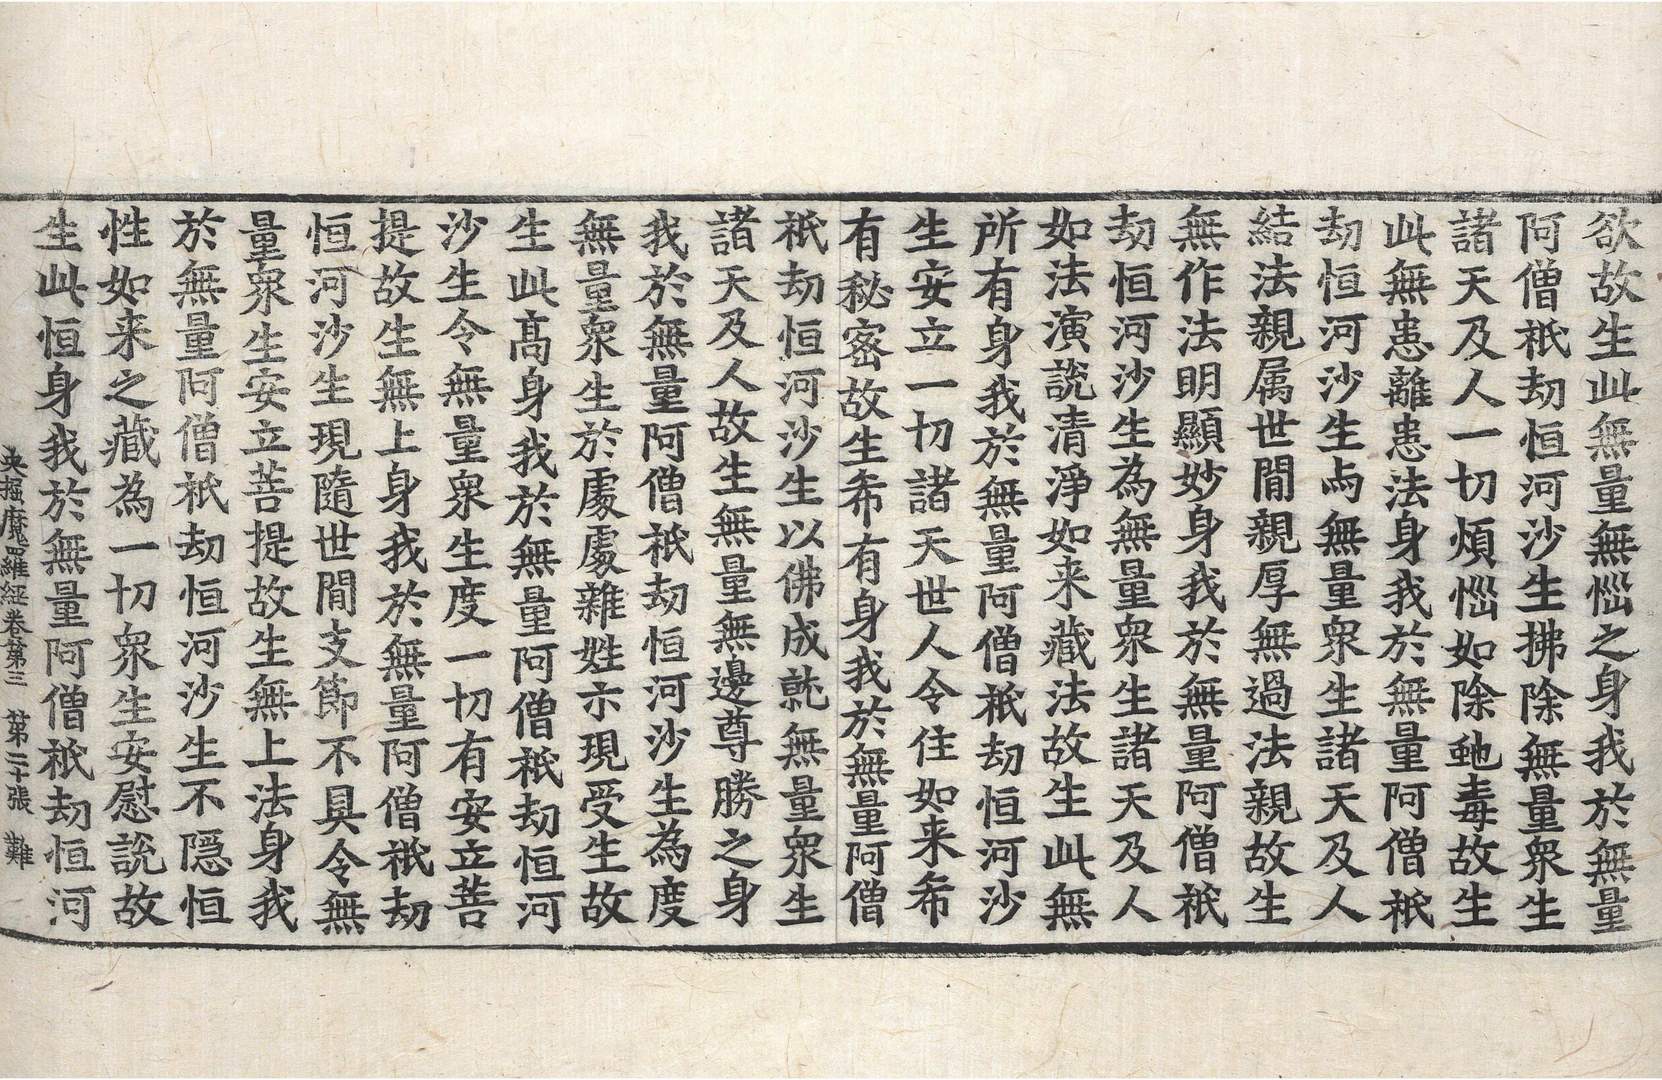 欲故生此無量無惱之身我於無量
阿僧祇劫恒河沙生拂除無量衆生
諸天及人一切煩惱如除虵毒故生
此無恚離恚法身我於無量阿僧祇
劫恒河沙生与無量衆生諸天及人
結法親属世閒親厚無過法親故生
無作法明顯妙身我於無量阿僧祇
劫恒河沙生為無量衆生諸天及人
如法演說清淨如来藏法故生此無
所有身我於無量阿僧祇劫恒河沙
生安立一切諸天世人令住如来希
有秘密故生希有身我於無量阿僧
祇劫恒河沙生以佛成就無量衆生
諸天及人故生無量無邊尊勝之身
我於無量阿僧祇劫恒河沙生為度
無量衆生於處處雜姓示現受生故
生此高身我於無量阿僧祇劫恒河
沙生令無量衆生度一切有安立菩
提故生無上身我於無量阿僧祇劫
恒河沙生現隨世閒支節不具令無
量衆生安立菩提故生無上法身我
於無量阿僧祇劫恒河沙生不隱恒
性如来之藏為一切衆生安慰說故
生此恒身我於無量阿僧祇劫恒河
央掘魔羅經卷第三 第二十張 難